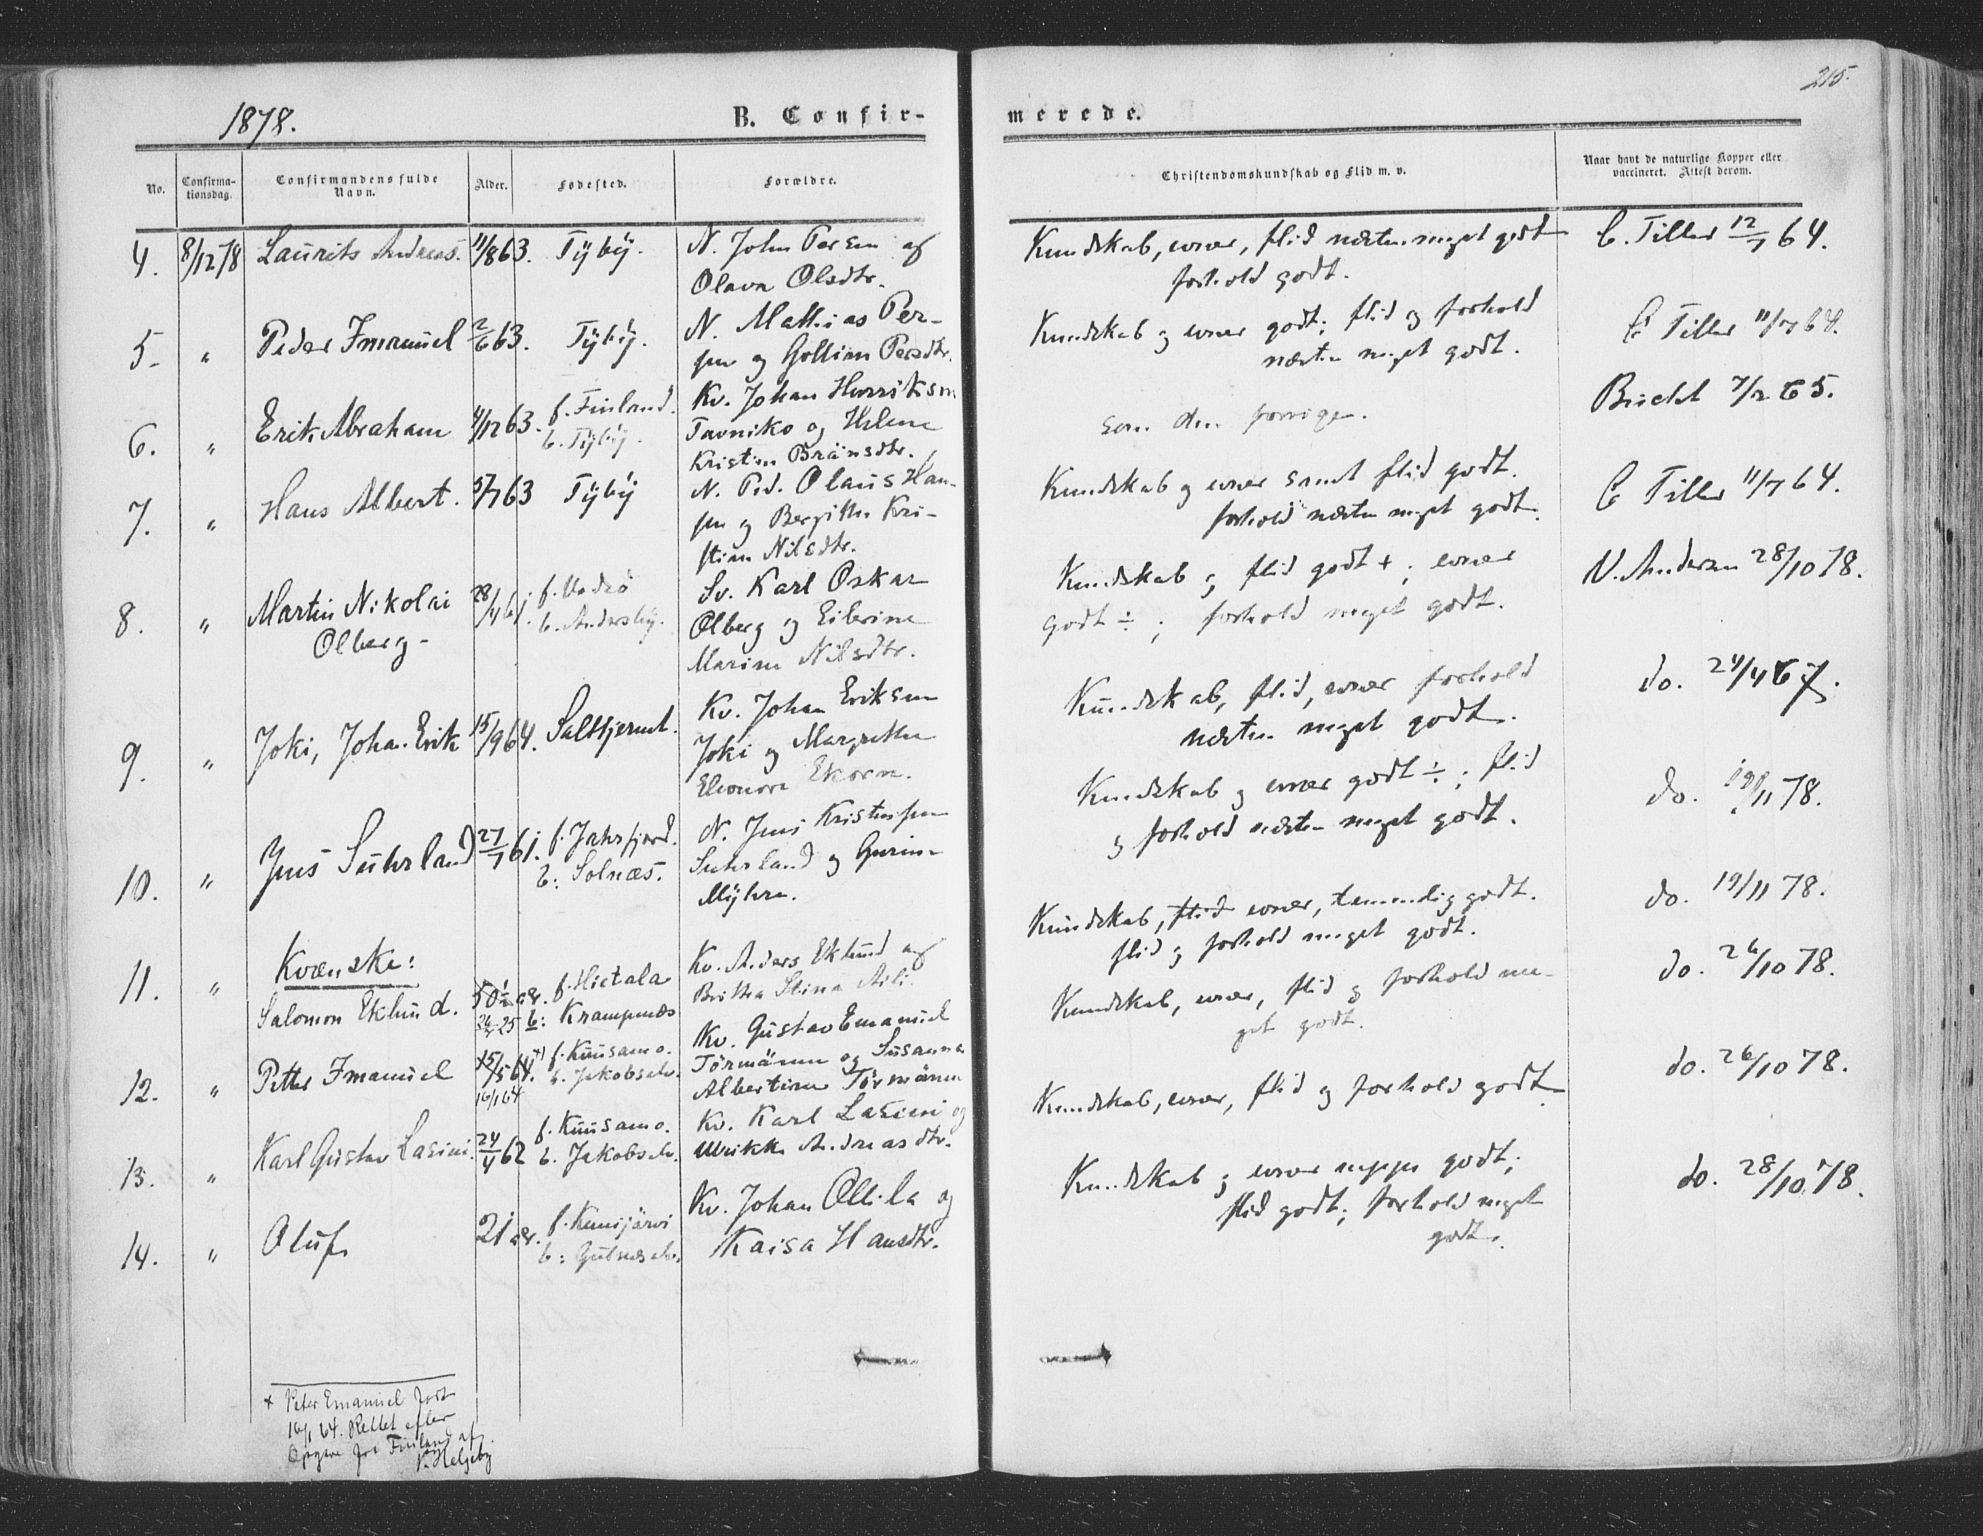 1878.
B. Confir-
merede.
215.
No.
Confirma-
tionsdag.
Confirmandens fulde
Navn.
Alder.
Fødested.
Forældre.
Christendomskundskab og Flid m. v.
Naar havt de naturlige Kopper eller
vaccineret. Attest derom.
4. 8/12 78 Laurits Andreas. 11/8 63. Tÿbÿ. N. John Persen og
Olava Olsdtr.
Kundskab, evner, flid næsten meget godt
forhold godt.
C. Tiller 12/7 64.
5. " Peder Imanuel 2/6 63. Tÿbÿ. N. Mathias Per-
sen og Golline Persdtr.
Kundskab og evner godt; flid og forhold
næsten meget godt.
C Tiller 11/7 64.
6. " Erik Abraham 11/12 63. f. Finland.
b. Tÿbÿ.
Kv. Johan Henriksen
Tavniko og Helene
Kristine Bränsdtr.
som den forrige.
7/2 65.
7. " Hans Albert. 63 Tÿbÿ N. Ped. Olaus Han-
sen og Bergitte Kri-
stine Nilsdtr.
Kundskab og evner samt flid godt.
forhold næsten meget godt.
C Tiller 11/7 64.
8. " Martin Nikolai
Olberg-
28/4 61. f. Vadsö
b. Andersby.
Sv. Karl Oskar
Olberg og Eilerine
Marine Nilsdtr.
Kundskab og flid godt +; evner
godt ÷; forhold meget godt.
N. Andersen 28/10 78.
9. " Joki, Johan Erik 15/9 64. Saltfjernt. Kv. Johan Eriksen
Joki og Margrethe
Eleonora Ekorn.
Kundskab, flid, evner forhold
næsten meget godt.
do. 24/4 67.
10. " Jens Suhrland 27/7 61. f. Jahrfjord.
b: Solnæs.
N. Jens Kristensen
Suhrland og Gurine
Mÿhre.
Kundskab og evner godt ÷; flid
og forhold næsten meget godt.
do. 19/11 78.
Kvænske:
11. " Salomon Eklund. 50½ aar.
25
f. Hietala
b: Krampenæs
Kv. Anders Eklund og
Britha Stina Aili.
Kundskab, flid evner, temmelig godt.
flid og forhold meget godt.
do. 19/11 78.
12. " Petter Imanuel 15/5 64. x)
16/1 64
f. Kuusamo.
b. Jakobselv.
Kv. Gustav Emanuel
Törmänen og Susanna
Albertine Törmänen
Kundskab, evner, flid og forhold me-
get godt.
do. 26/10 78.
13. " Karl Gustav Lasini. 24/4 62 f. Kuusamo.
b. Jakobselv.
Kv. Karl Lasini og
Ulrikke Andreasdtr.
Kundskab, evner, flid og forhold godt
do. 26/10 78.
14. " Oluf. 21 aar. f. Kemijärvi
b: Gulnæselv.
Kv. Johan Ollila og
Kaisa Hansdtr.
Kundskab og evner neppe godt;
flid godt; forhold meget
godt.
do. 28/10 78.
x Peter Emanuel født
16/1 64. Rettet efter
Opgave fra Finland af
V. Helgeby